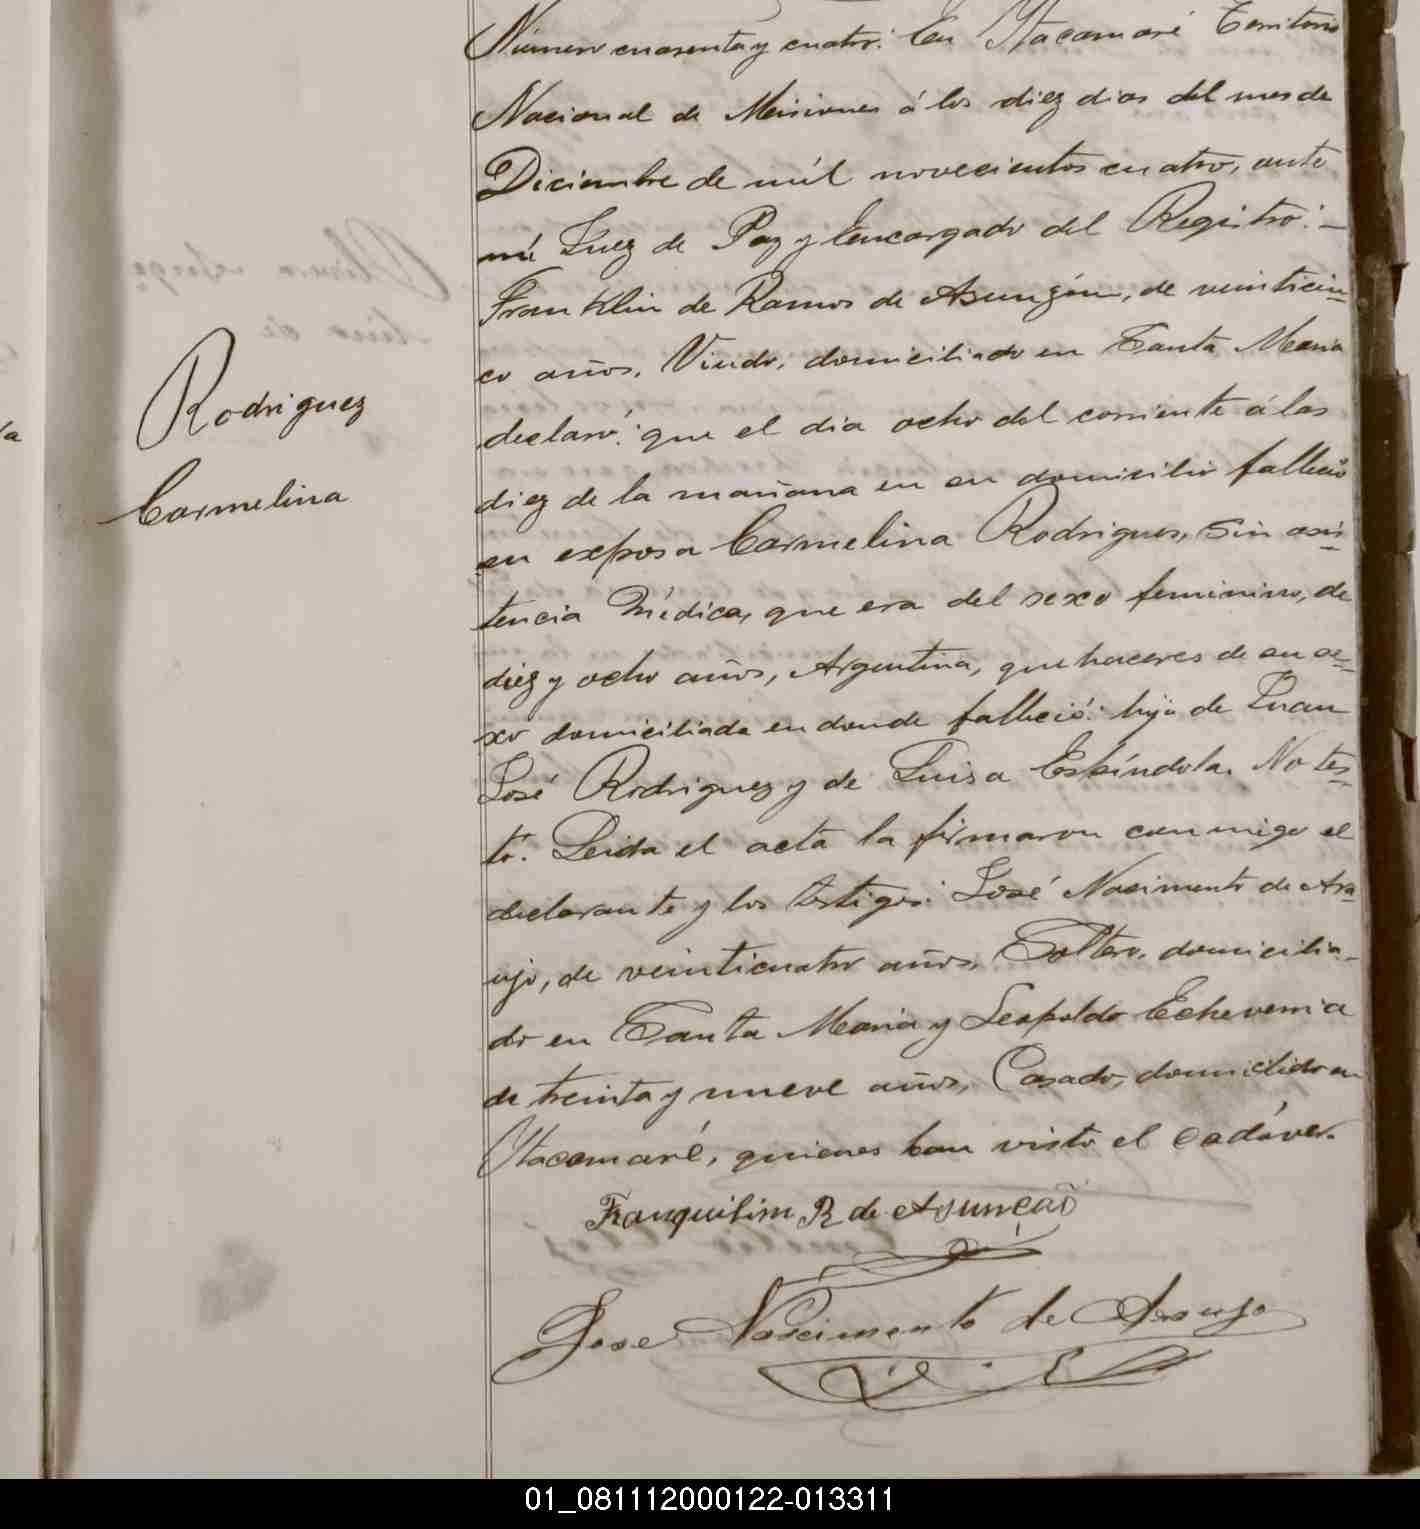 Número cuarenta y cuatro: En Itacaruaré Territorio
Nacional de Misiones á los diez dias del mes de
Diciembre de mil novecientos cuatro, ante
mi Juez de Paz y Encargado del Registro: —
Franklin de Ramos de Asunçóm, de veinticin-
co años, Viudo, domiciliado en Santa Maria
declaró: que el dia ocho del corriente á las
diez de la mañana en su domicilio falleció
su exposa Carmelina Rodrigues, sin asis-
tencia Médica, que era del sexo feminino, de
diez y ocho años, Argentina, quehaceres de su se-
xo domiciliada en donde falleció: hija de Juan
José Rodriguez y de Luisa Espíndola. No tes-
tó. Leida el acta la firmaron conmigo el
declarante y los testigos: José Nacimento de Ara-
ujo, de veinticuatro años, Soltero, domicilia-
do en Santa Maria y Leopoldo Echeverria
de treinta y nueve años, Casado, domicilido en
Itacaruaré, quienes han visto el cadáver.
Rodriguez
Carmelina
Franquilim R de Asunçaõ
Jose Nascimento de Araujo
01_081112000122-013311